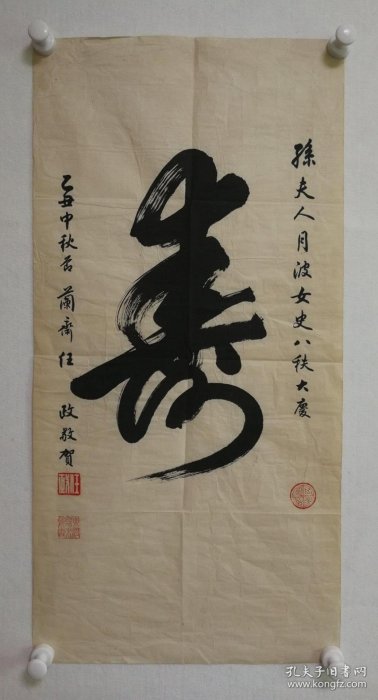 孫夫人月波女史八秩大慶
壽
乙丑中秋苦蘭齋任政敬賀
孔夫子旧书网
www.kongfz.com